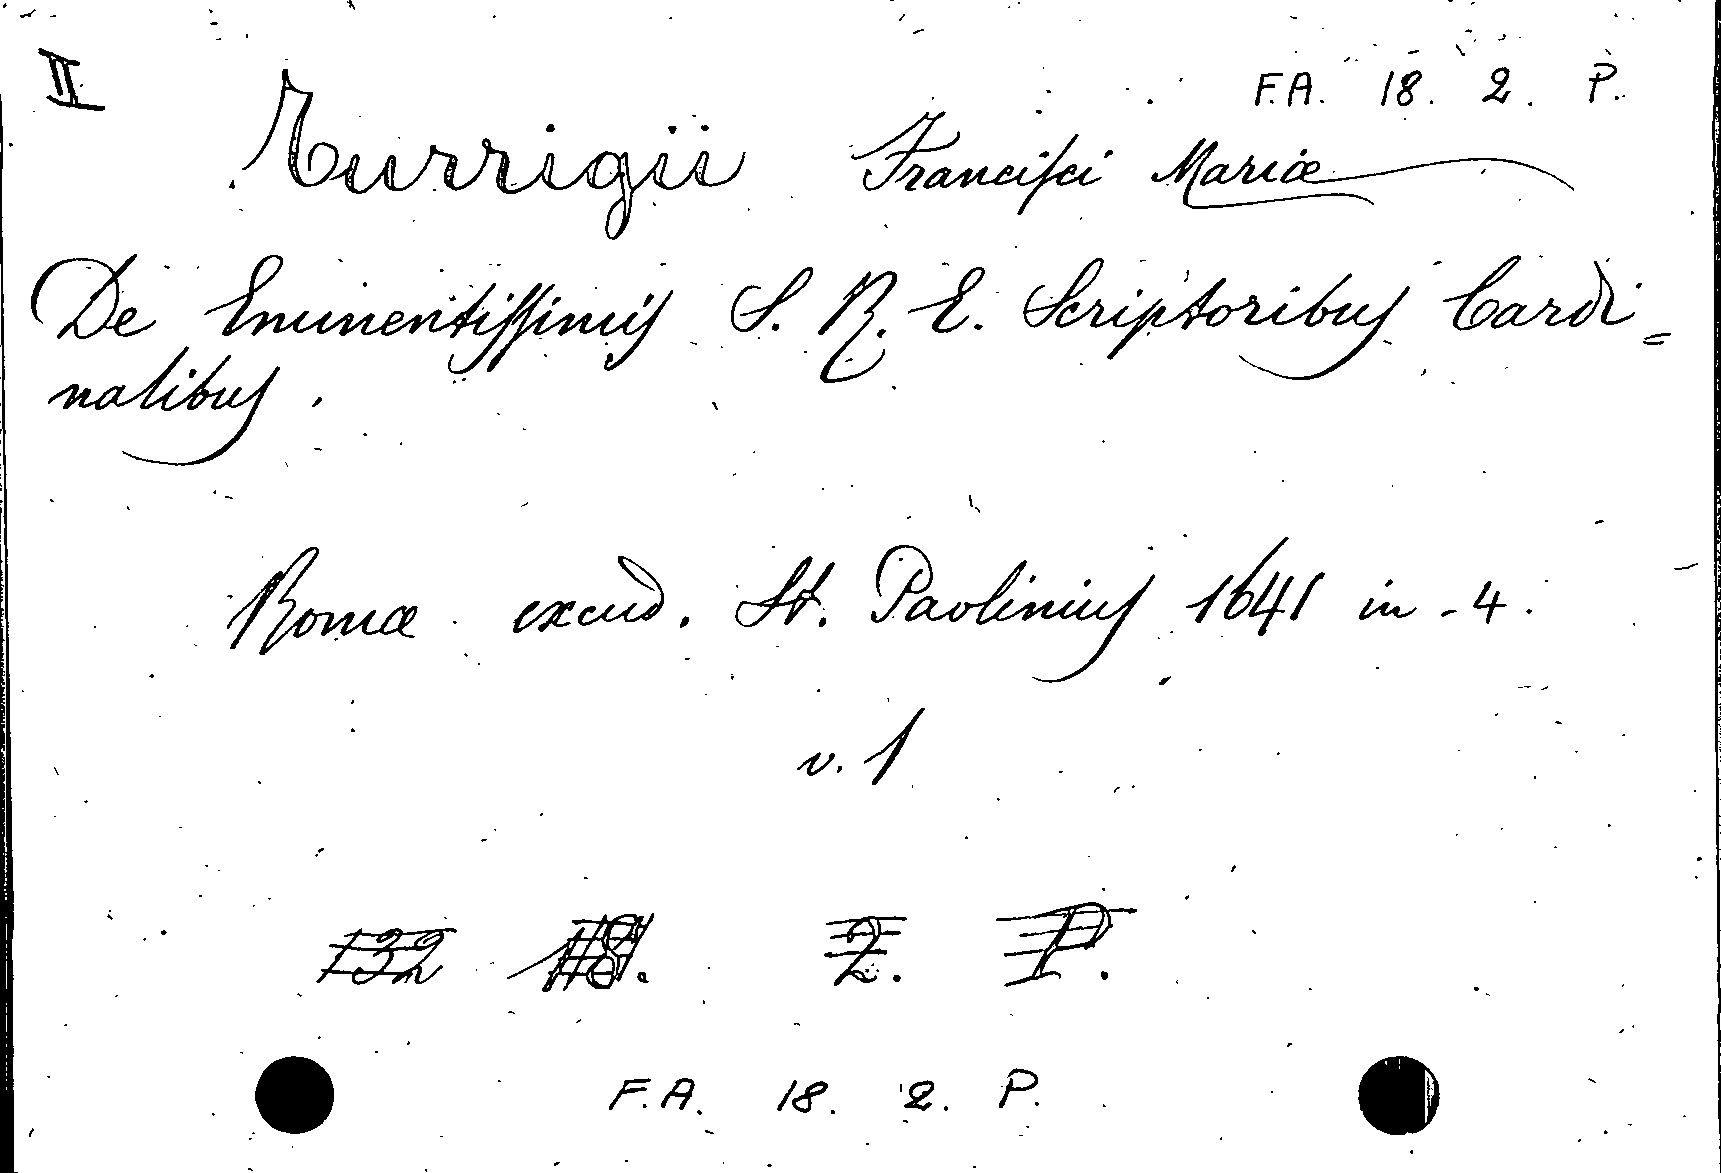 II F.A. 18. 2. P.
Turrigii Francisci Mariæ
De Eminentissimis S. R. E. Scriptoribus Cardi=
nalibus.
Romæ excud. St. Paolinius 1641 in-4.
v. 1
132 18. 2. P.
F.A. 18. 2. P.